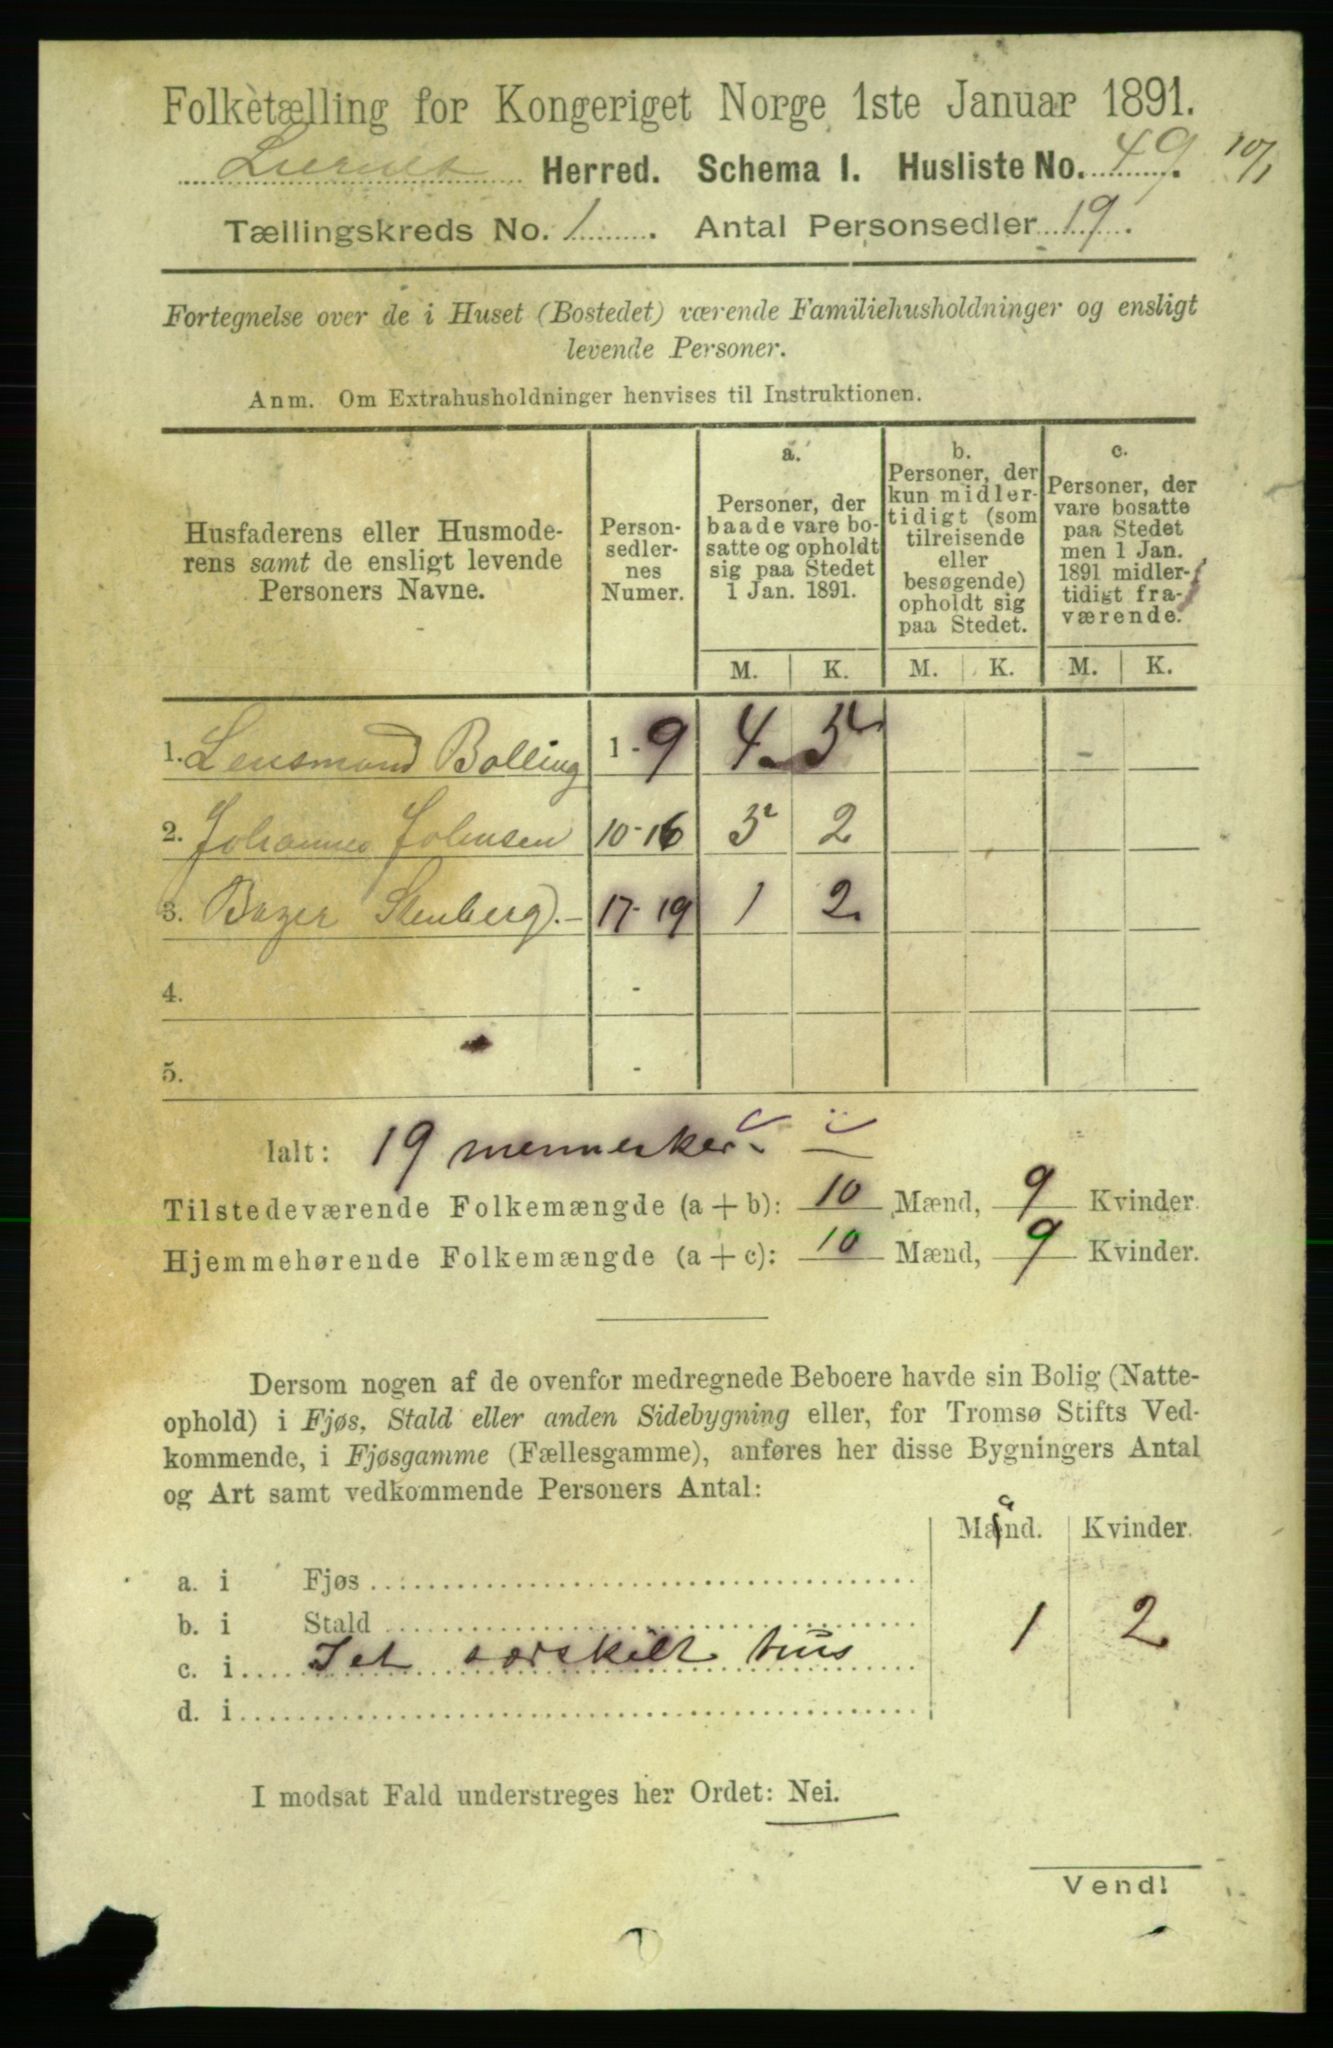 Folketælling for Kongeriget Norge 1ste Januar 1891.
Herred. Schema I. Husliste No. 49. 10/1
Tællingskreds No. 1. Antal Personsedler 19.
Fortegnelse over de i Huset (Bostedet) værende Familiehusholdninger og ensligt
levende Personer.
Anm. Om Extrahusholdninger henvises til Instruktionen.
Husfaderens eller Husmode-
rens samt de ensligt levende
Personers Navne.
Person-
sedler-
nes
Numer.
a.
Personer, der
baade vare bo-
satte og opholdt
sig paa Stedet
1 Jan. 1891.
b.
Personer, der
kun midler-
tidigt (som
tilreisende
eller
besøgende)
opholdt sig
paa Stedet.
c.
Personer, der
vare bosatte
paa Stedet
men 1 Jan.
1891 midler-
tidigt fra-
værende.
M. K. M. K. M. K.
1. Lensmand Bolling 1-9 4 5
2. Johannes Johnsen 10-16 5 2
3. Stenberg.- 17-19 1 2
4. -
5. -
Ialt: 19 mennesker.
Tilstedeværende Folkemængde (a + b): 10 Mænd, 9 Kvinder.
Hjemmehørende Folkemængde (a + c): 10 Mænd, 9 Kvinder.
Dersom nogen af de ovenfor medregnede Beboere havde sin Bolig (Natte-
ophold) i Fjøs, Stald eller anden Sidebygning eller, for Tromsø Stifts Ved-
kommende, i Fjøsgamme (Fællesgamme), anføres her disse Bygningers Antal
og Art samt vedkommende Personers Antal:
Mænd. Kvinder.
a. i Fjøs
b. i Stald 1 2
c. i I et særskilt hus
d. i
I modsat Fald understreges her Ordet: Nei.
Vend!